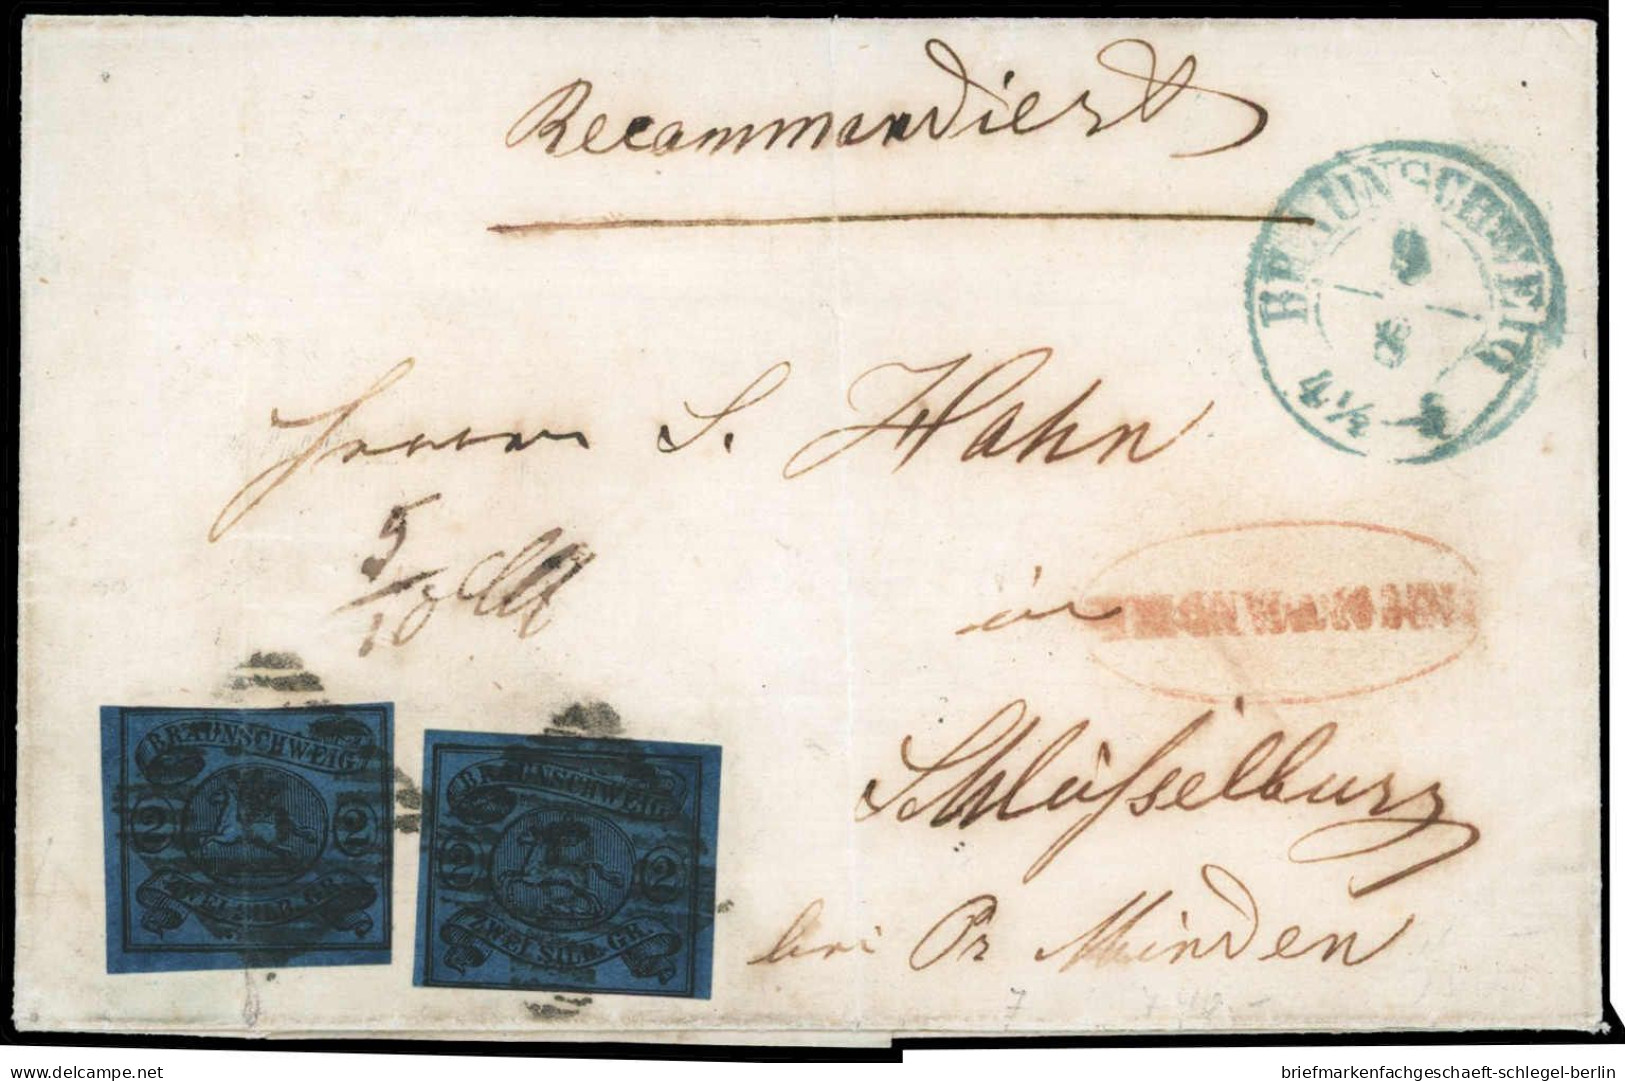 Recommandiert
BRAUNSCHWEIG
9
8
Herrn S. Hahn
5
in
Schlüsselburg
bei Pr Minden
BRAUNSCHWEIG
2 2
ZWEI SILB. GR.
BRAUNSCHWEIG
2 2
ZWEI SILB. GR.
www.delcampe.net
briefmarkenfachgeschaeft-schlegel-berlin